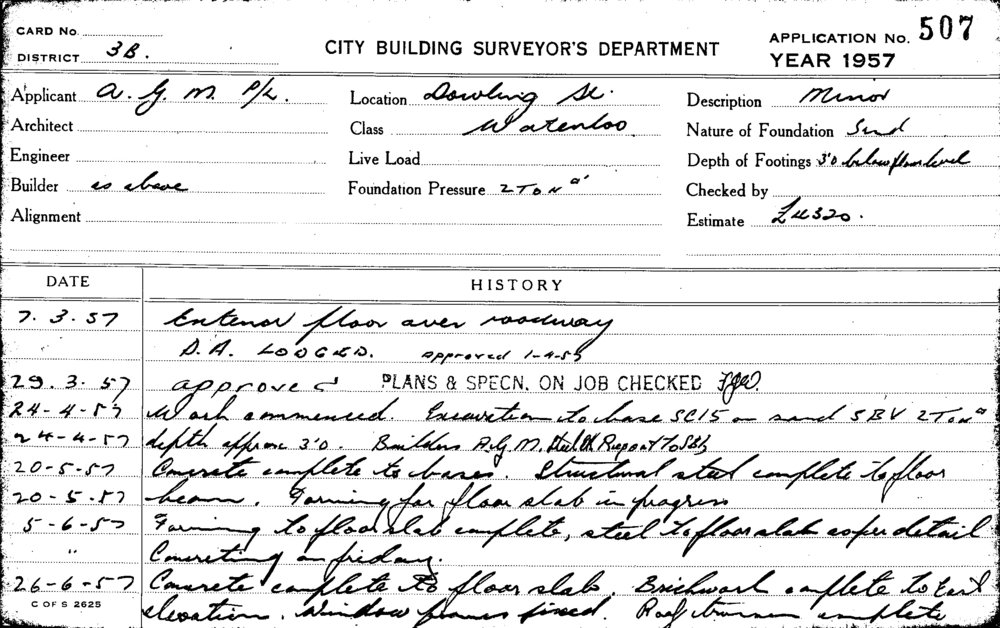 CARD No.
DISTRICT 3B.
CITY BUILDING SURVEYOR'S DEPARTMENT
APPLICATION No. 507
YEAR 1957
Applicant A. G. M. P/L.
Location Dowling St.
Description Minor
Architect
Class Waterloo
Nature of Foundation Sand
Engineer
Live Load
Depth of Footings 3'0 below floor level
Builder as above
Foundation Pressure 2 TON □'
Checked by
Alignment
Estimate £4320.
DATE
HISTORY
7. 3. 57 floor over roadway
D.A. LODGED. approved 1-4-57
29. 3. 57 approved PLANS & SPECN. ON JOB CHECKED
24-4-57 Work commenced. Excavation to base SC15 on sand SBV 2 TON □'
24-4-57 depth approx 3'0. Builders A.G.M. Report to
20-5-57 Concrete complete to bases. Structural steel complete to floor
20-5-57 beam. Forming for floor slab in progress
5-6-57 Forming to floor slab complete, steel to floor slab as per detail
" Concreting on friday.
26-6-57 Concrete complete to floor slab. Brickwork complete to East
C OF S 2625
elevation. Window frames fixed. Roof trusses complete